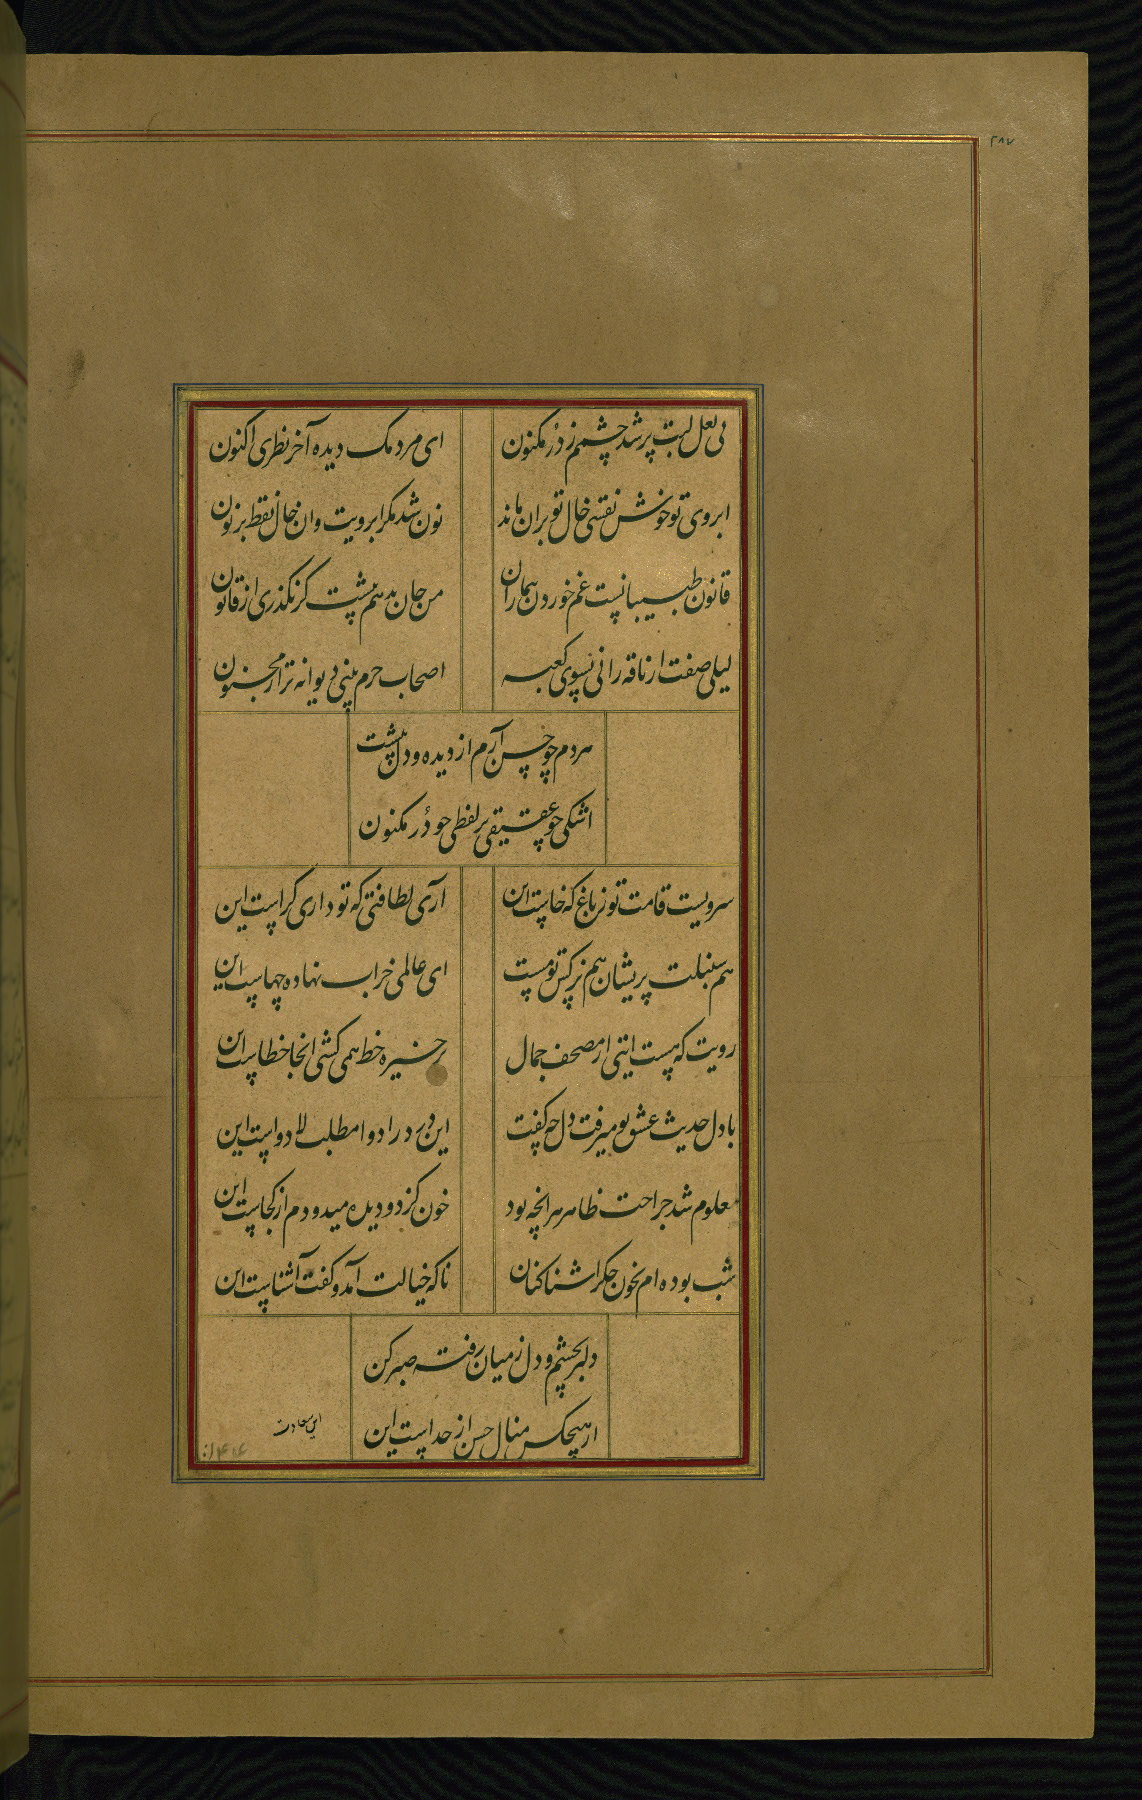 ۲۸۷
بی لعل لبت پر شد چشمم ز دُر مکنون
ای مردمک دیده آخر نظری اکنون
ابروی تو خوش نقشی خال تو بران ماند
نون شد مکر ابرویت وان خال نقط بر نون
قانون طبیبانست غم خوردن بیماران
من جان بدهم پیشت کر نکذری از قانون
لیلی صفت ار ناقه رانی بسوی کعبه
اصحاب حرم بینی دیوانه تر از مجنون
هردم چو حسن آرم از دیده و دل پیشت
اشکی چو عقیقی تر لفظی چو دُر مکنون
سرویست قامت تو ز باغ که خاست این
آری لطافتی که تو داری کراست این
هم سنبلت پریشان هم نرکس تو مست
ای عالمی خراب نهاده چهاست این
رویت که هست ایتی از مصحف جمال
بر خیره خط همی کشی انجا خطاست این
با دل حدیث عشق تو میرفت دل چه کفت
این درد را دوا مطلب لا دواست این
معلوم شد جراحت ظاهر هر انچه بود
خون کز دو دیده میدودم از کجاست این
شب بوده ام بخون جکر اشنا کنان
ناکه خیالت آمد و کفت آشناست این
دلبر بچشم و دل ز میان رفت صبر کن
از هیچکس منال حسن از خداست این
این سعادت